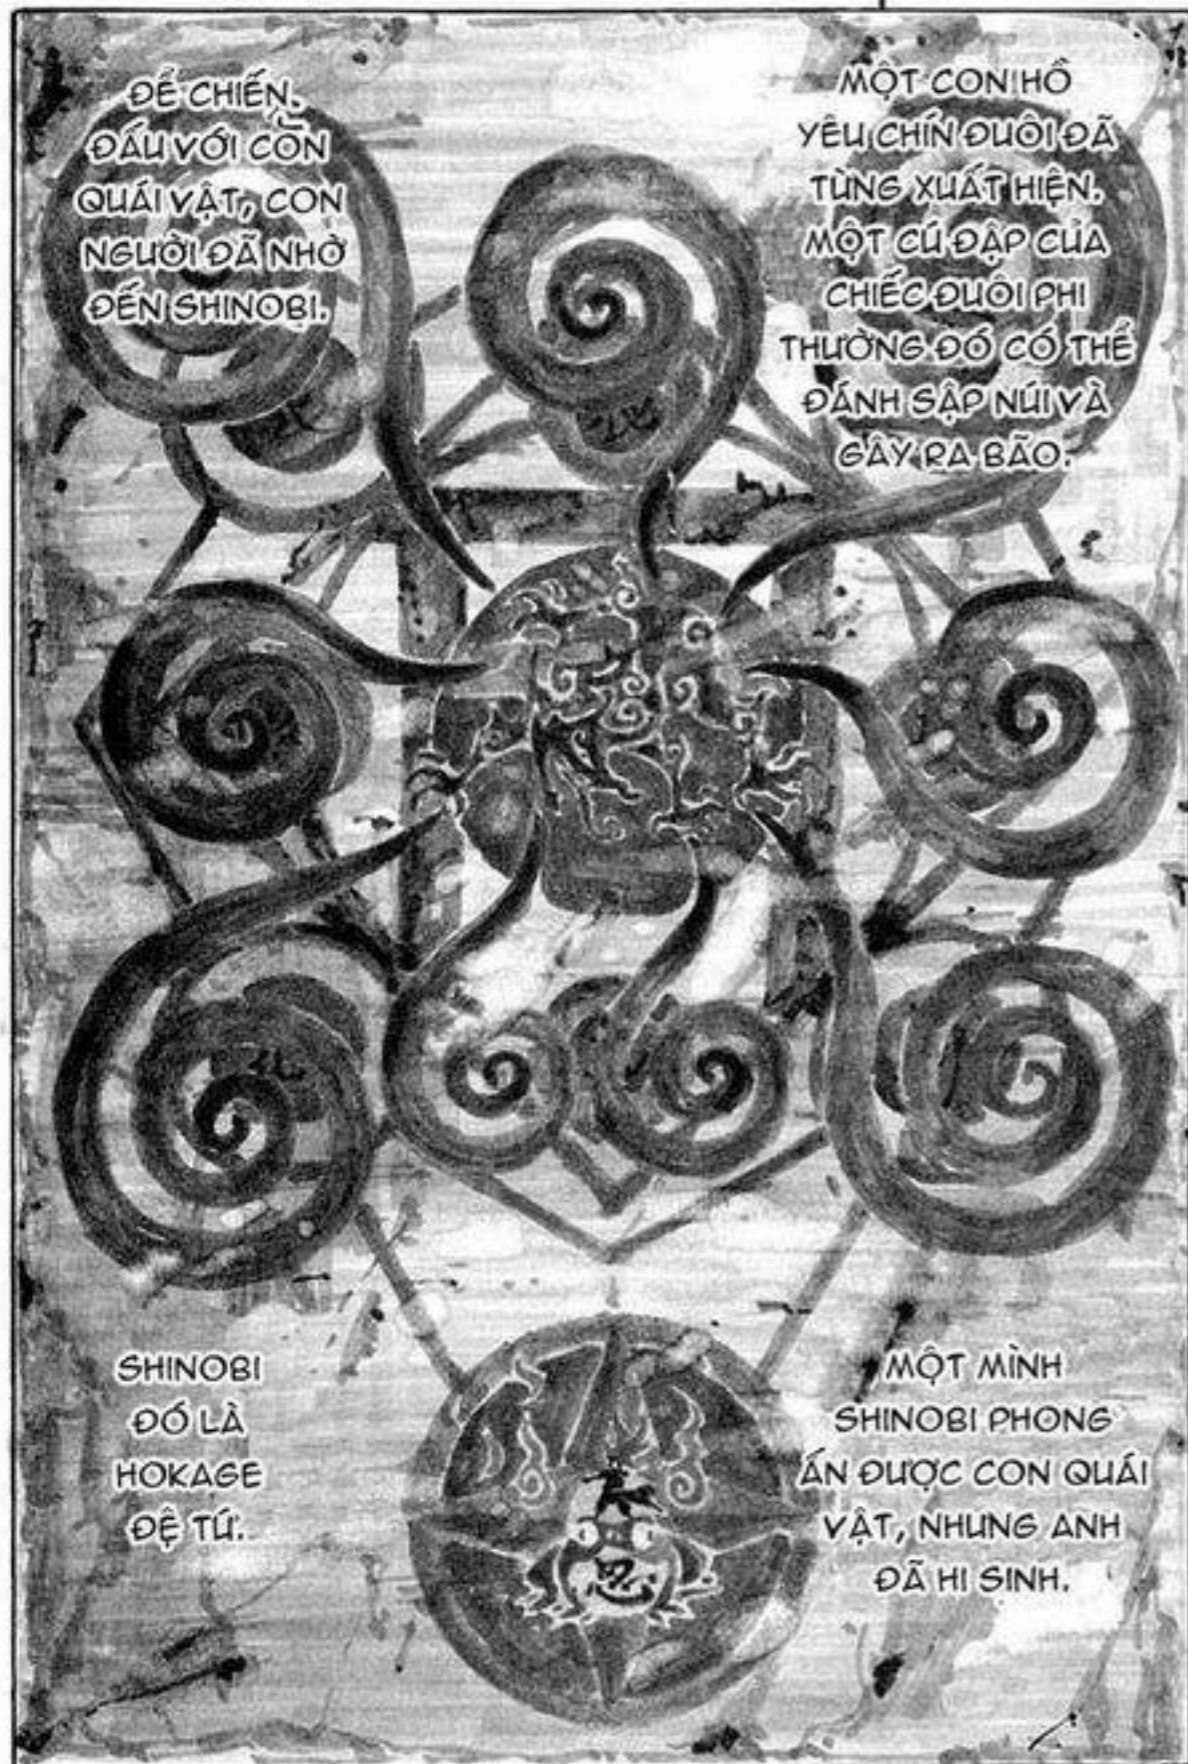 MỘT CON HỒ
YÊU CHÍN ĐUÔI ĐÃ
TỪNG XUẤT HIỆN.
MỘT CÚ ĐẬP CỦA
CHIẾC ĐUÔI PHI
THƯỜNG ĐÓ CÓ THỂ
ĐÁNH SẬP NÚI VÀ
GÂY RA BÃO.
ĐỂ CHIẾN
ĐẤU VỚI CON
QUÁI VẬT, CON
NGƯỜI ĐÃ NHỜ
ĐẾN SHINOBI.
MỘT MÌNH
SHINOBI PHONG
ẤN ĐƯỢC CON QUÁI
VẬT, NHƯNG ANH
ĐÃ HI SINH.
SHINOBI
ĐÓ LÀ
HOKAGE
ĐỆ TỨ.